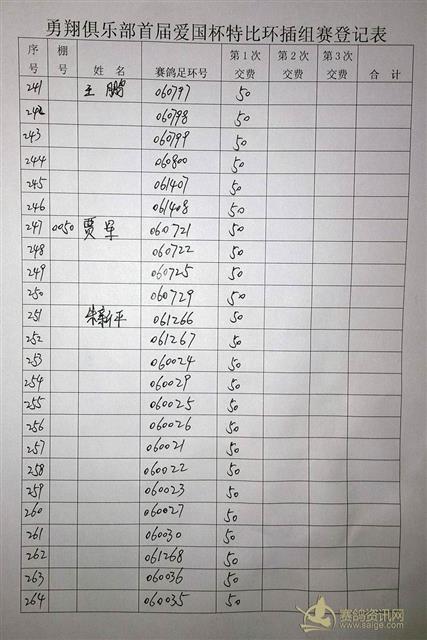 勇翔俱乐部首届爱国杯特比环插组赛登记表
序号 棚号 姓名 赛鸽足环号 第1次交费 第2次交费 第3次交费 合计
241 王鹏 060797 50
242 060798 50
243 060799 50
244 060800 50
245 061407 50
246 061408 50
247 0050 贾军 060721 50
248 060722 50
249 060725 50
250 060729 50
251 朱新平 061266 50
252 061267 50
253 060024 50
254 060029 50
255 060025 50
256 060026 50
257 060021 50
258 060022 50
259 060023 50
260 060027 50
261 060030 50
262 061268 50
263 060036 50
264 060035 50
赛鸽资讯网
www.saige.com